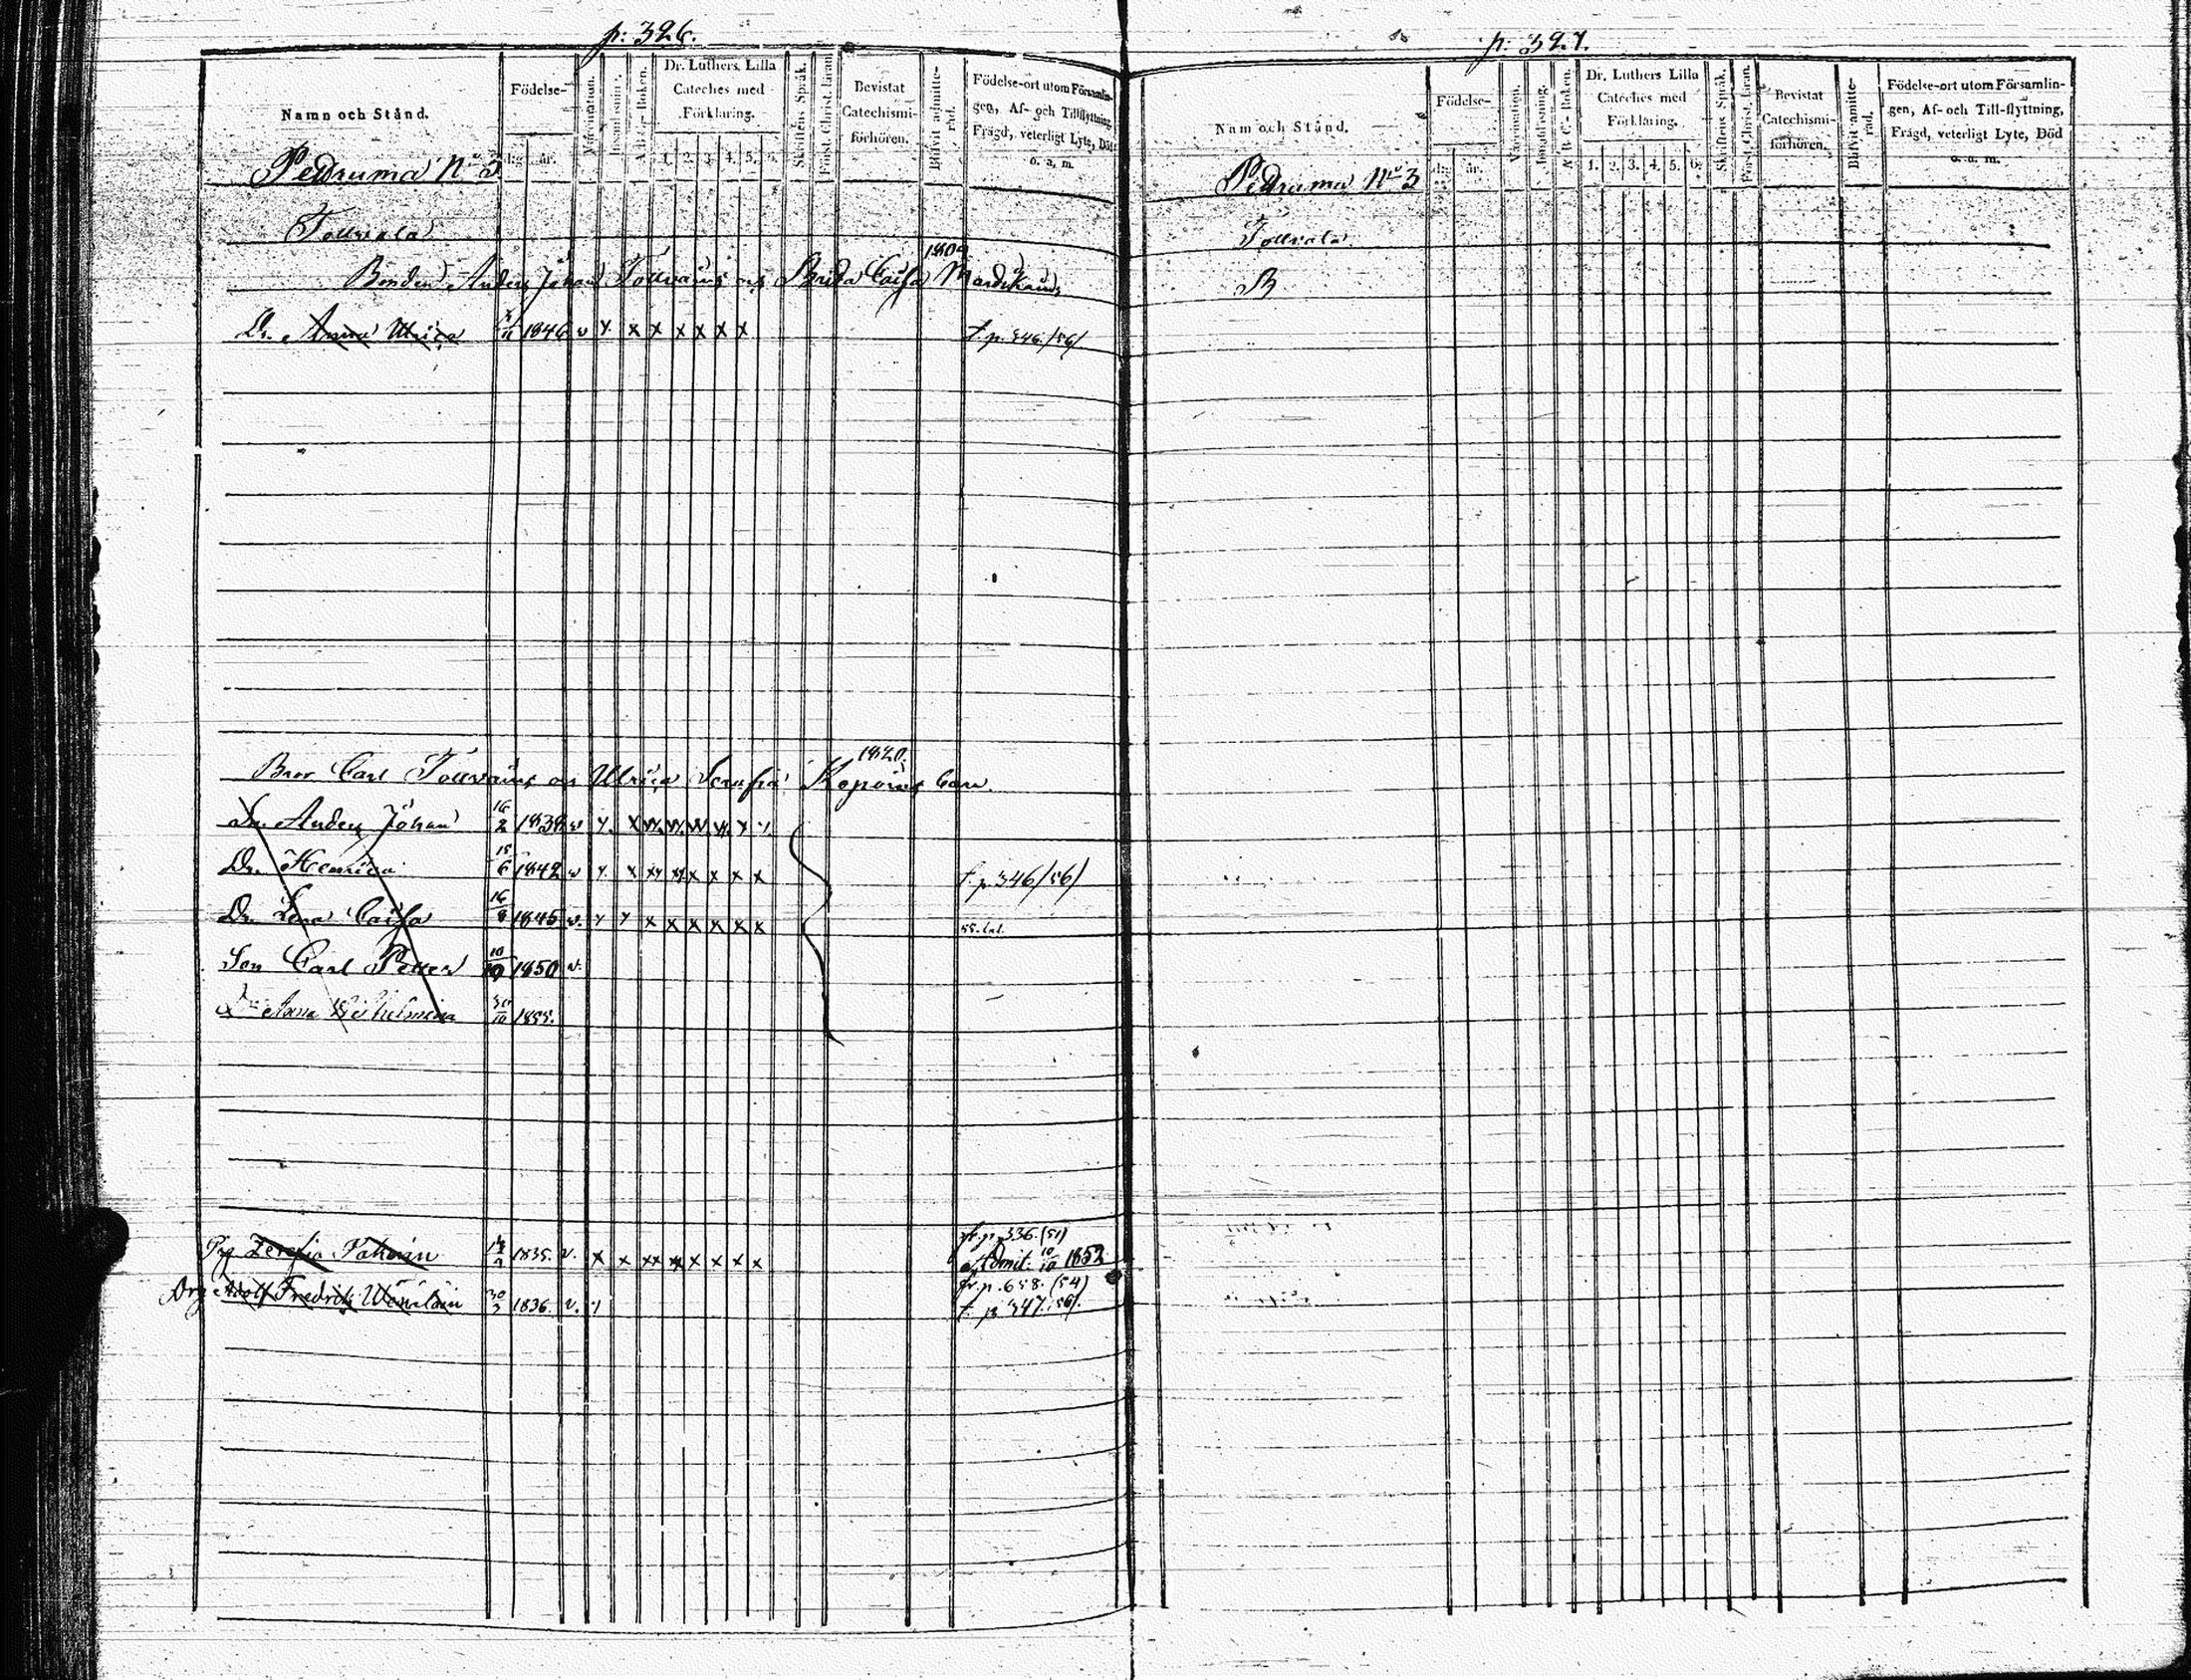 p. 326.
Namn och Stånd.
Födelse-
dag
år.
Vaccination.
Innanläsning.
A B C - Boken.
Dr. Luthers Lilla
Cateches med
Förklaring.
1. 2. 3. 4. 5. 6.
Skriftens Språk.
Först. Christ. läran.
Bevistat
Catechismi-
förhören.
Blifvit admitte-
rad.
Födelse-ort utom Församlin-
gen, Af- och Tillflyttning,
Frägd, veterligt Lyte, Död
o. a. m.
Pedruma No 3
1809
Bonden Anders Johan och Brita Caisa
Dr. Anna Ulrica 1846 v y x x x x x x t. p. 346/56/
1820.
Bror Carl och Ulrica Serafia
Son Anders Johan 16/2 1838 v y. x
Dr. Henrica 15/6 1842 v y x t. p 346/56)
Dr. Lena Caisa 16/8 1845 v. y y x x x x x x
Son Carl Petter 10/10 1850 v.
Dr Anna Wilhelmina 30/10 1855.
fr. p. 336. (51)
Pg 1835. v. x x xx x x x x x Admit. 10/10 1852
fr. p. 658. (54)
Drg Adolf Fredrik 30/3 1836. v. y t. p 347. (56).
p. 327.
Namn och Stånd.
Födelse-
dag
år.
Vaccination.
Innanläsning.
A B C - Boken.
Dr. Luthers Lilla
Cateches med
Förklaring.
1. 2. 3. 4. 5. 6.
Skriftens Språk.
Först. Christ. läran.
Bevistat
Catechismi-
förhören.
Blifvit admitte-
rad.
Födelse-ort utom Församlin-
gen, Af- och Till-flyttning,
Frägd, veterligt Lyte, Död
o. a. m.
Pedruma No 3
B